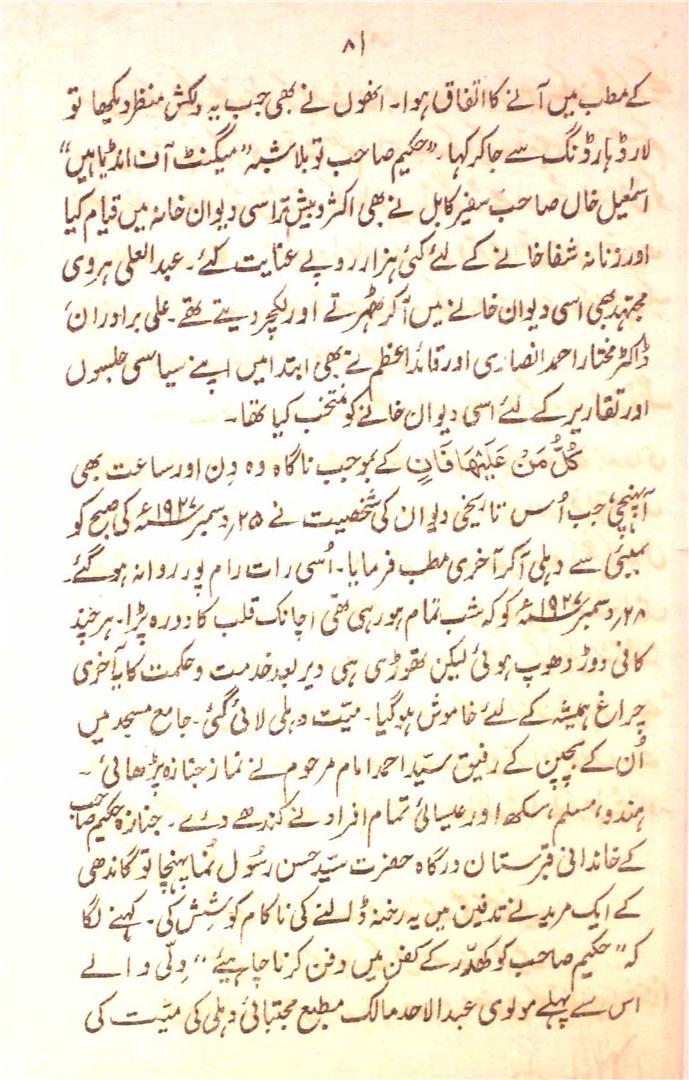 ۸۱
کے مطب میں آنے کا اتفاق ہوا۔ انھوں نے بھی جب یہ دلکش منظر دیکھا تو
لارڈ ہارڈنگ سے جا کر کہا۔ "حکیم صاحب تو بلا شبہ "میگنٹ آف انڈیا ہیں"
اسمٰعیل خاں صاحب سفیر کابل نے بھی اکثر و بیشتر اسی دیوان خانہ میں قیام کیا
اور زنانہ شفا خانے کے لئے کئی ہزار روپے عنایت کئے۔ عبدالعلی ہروی
مجتہد بھی اسی دیوان خانے میں آ کر ٹھہرتے اور لکچر دیتے تھے۔ علی برادران،
ڈاکٹر مختار احمد انصاری اور قائد اعظم نے بھی ابتدا میں اپنے سیاسی جلسوں
اور تقاریر کے لئے اسی دیوان خانے کو منتخب کیا تھا۔
کُلُّ مَنْ عَلَیْهَا فَانٍ کے بموجب ناگاہ وہ دن اور ساعت بھی
آپہنچی، جب اُس تاریخی دیوان کی شخصیت نے ۲۵؍دسمبر ۱۹۲۷ء کی صبح کو
بمبئی سے دہلی آ کر آخری مطب فرمایا۔ اُسی رات رام پور روانہ ہو گئے
۲۸؍دسمبر ۱۹۲۷ء کو کہ شب تمام ہو رہی تھی اچانک قلب کا دورہ پڑا۔ ہر چند
کافی دوڑ دھوپ ہوئی لیکن تھوڑی ہی دیر بعد خدمت و حکمت کا یہ آخری
چراغ ہمیشہ کے لئے خاموش ہو گیا۔ میّت دہلی لائی گئی۔ جامع مسجد میں
اُن کے بچپن کے رفیق سیّد احمد امام مرحوم نے نماز جنازہ پڑھائی۔
ہندو، مسلم، سکھ اور عیسائی تمام افراد نے کندھے دئے۔ جنازہ حکیم صاحب
کے خاندانی قبرستان درگاہ حضرت سیّد حسن رسُول نُما پہنچا تو گاندھی
کے ایک مرید نے تدفین میں یہ رخنہ ڈالنے کی ناکام کوشِش کی۔ کہنے لگا
کہ "حکیم صاحب کو کھدّر کے کفن میں دفن کرنا چاہیئے" دِلّی والے
اس سے پہلے مولوی عبدالاحد مالک مطبع مجتبائی دہلی کی میّت کی